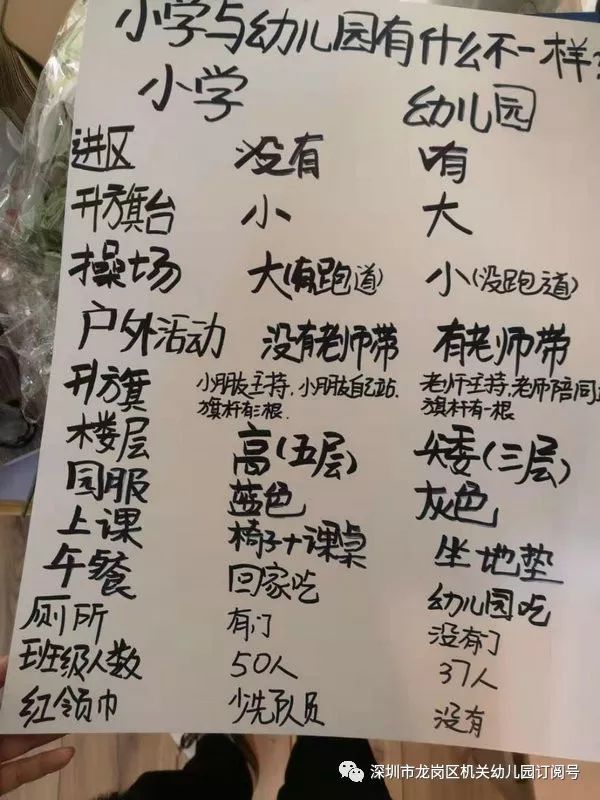 小学与幼儿园有什么不一样?
小学 幼儿园
进区 没有 有
升旗台 小 大
操场 大(有跑道) 小(没跑道)
户外活动 没有老师带 有老师带
升旗 小朋友主持,小朋友自己站. 老师主持,老师陪同
旗杆有三根 旗杆有一根
楼层 高(五层) 矮(三层)
园服 蓝色 灰色
上课 椅子+课桌 坐地垫
午餐 回家吃 幼儿园吃
厕所 有门 没有门
班级人数 50人 37人
红领巾 少先队员 没有
深圳市龙岗区机关幼儿园订阅号